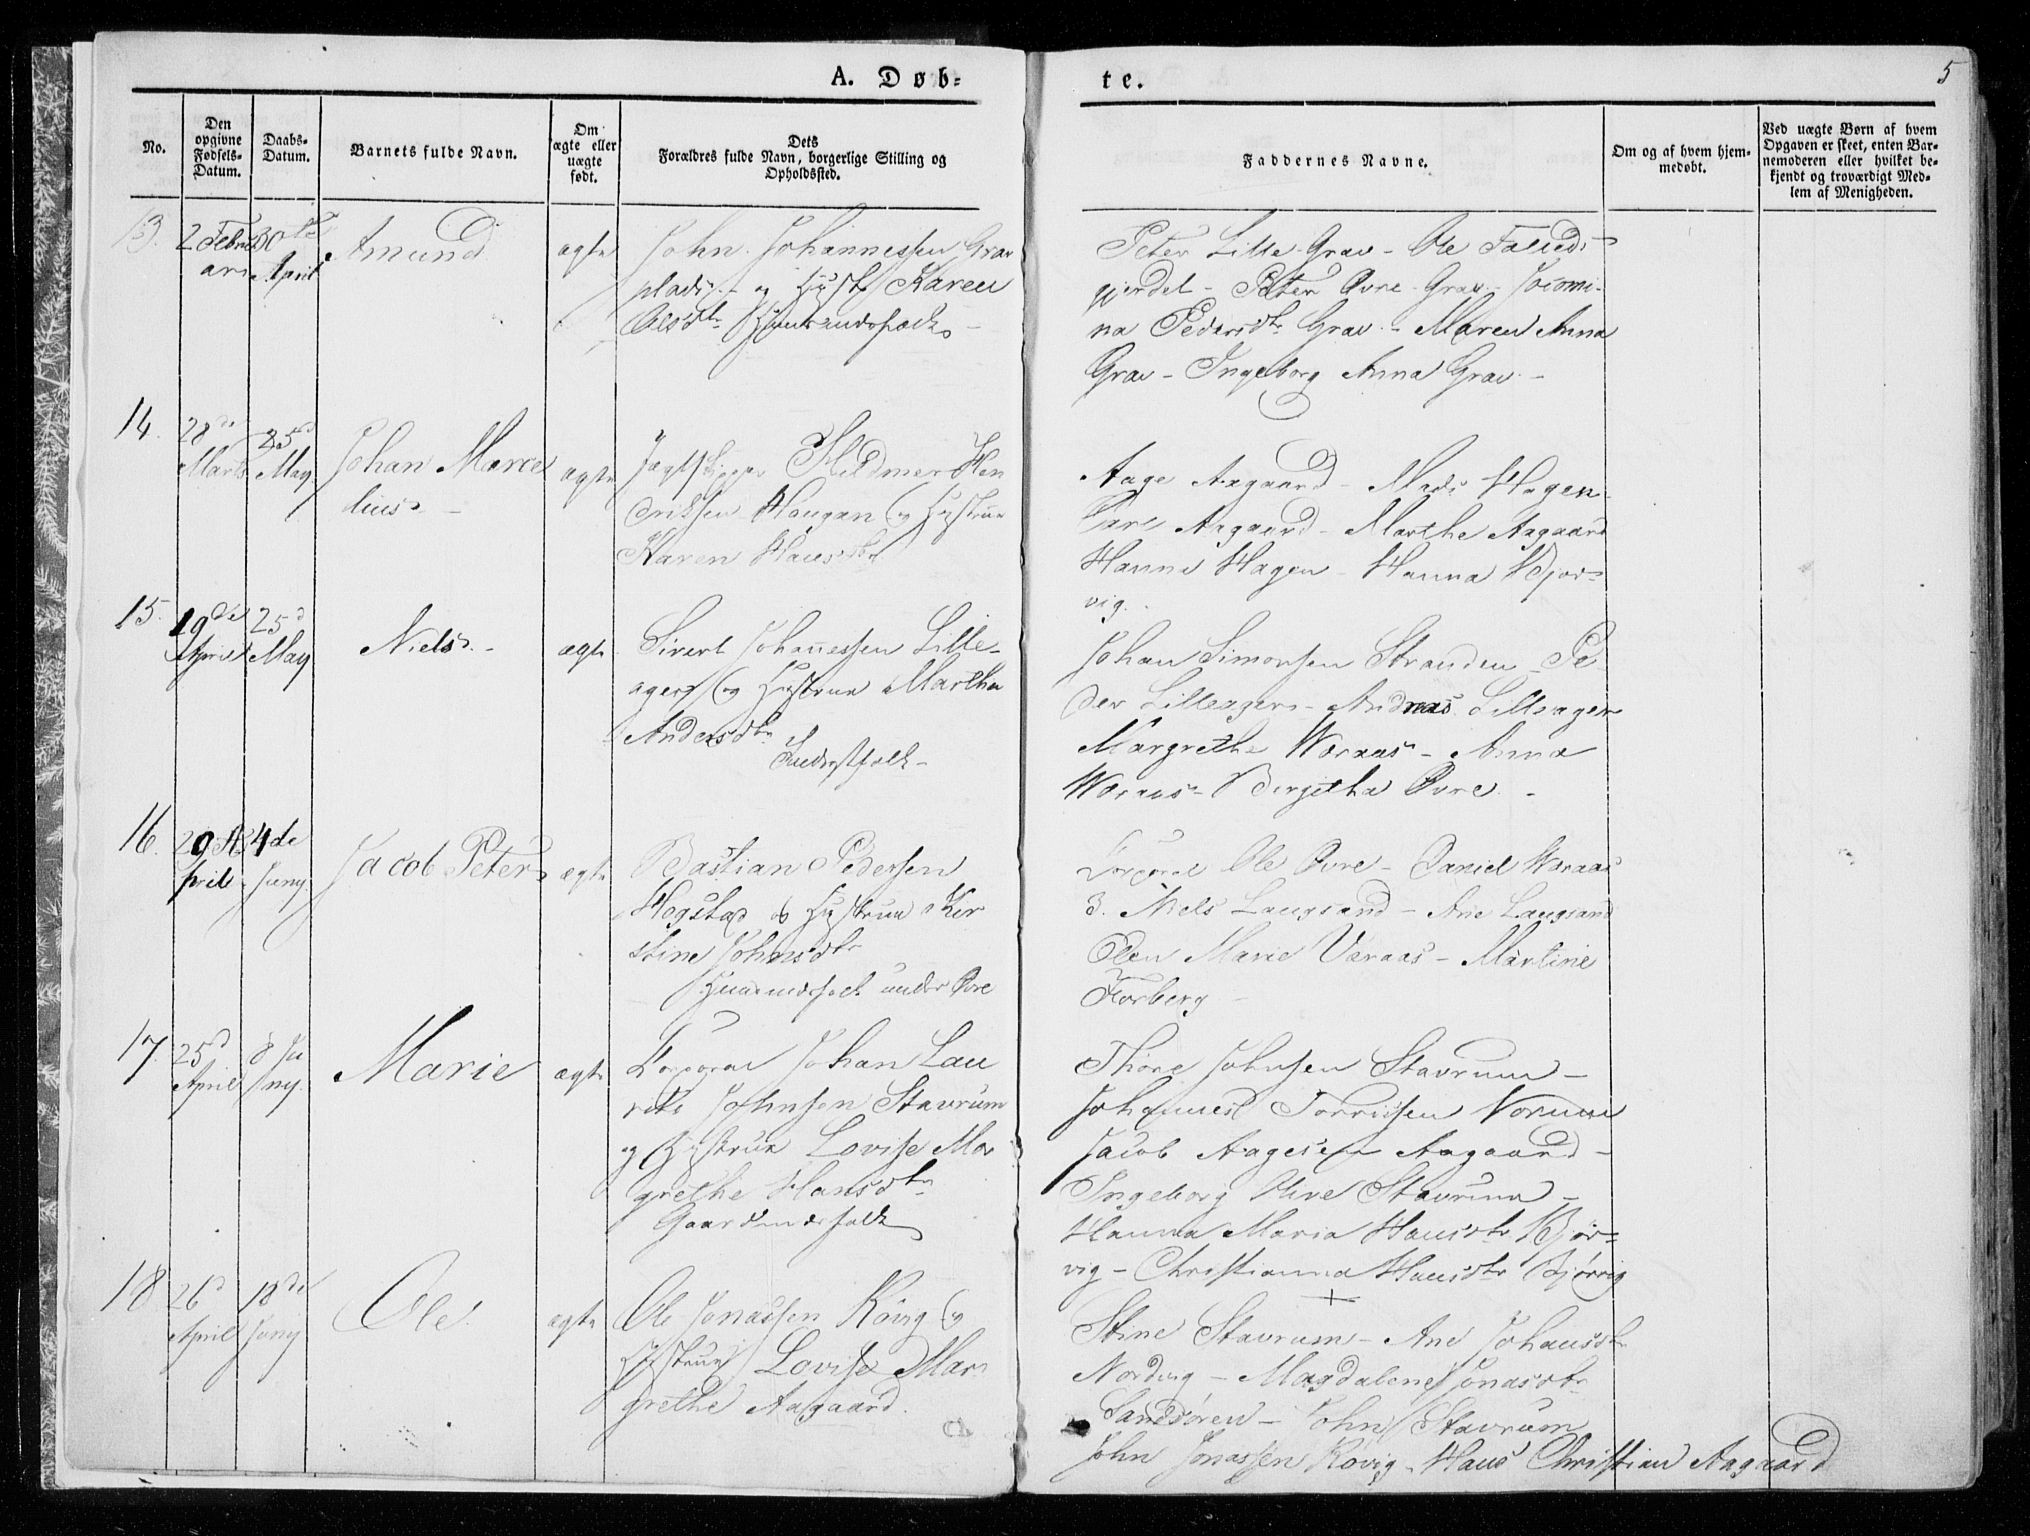 A. Døb-
te.
5
No.
Den opgivne Fødsels-Datum.
Daabs-Datum.
Barnets fulde Navn.
Om ægte eller uægte født.
Dets Forældres fulde Navn, borgerlige Stilling og Opholdssted.
Faddernes Navne.
Om og af hvem hjemmedøbt.
Ved uægte Børn af hvem Opgaven er skeet, enten Barnemoderen eller hvilket bekjendt og troværdigt Medlem af Menigheden.
13. 2 Febru
ari
30te
April
Amund
ægte
John Johannessen Grav
plads og Hust Karen
Olsdtr Huusmandsfolk
Peter Lille Grav - Ole
Peter Øvre Grav -
na Pedersdtr Grav - Maren Anna
Grav - Ingeborg Anna Grav -
14. 28de
Marts
25d
May
Johan Marce
lius -
ægte
Jagtskipper Hildmer Hen
driksen Haugan og Hustrue
Karen Hansdtr
Aage Aagaard - Mads Hagen
Aagaard - Marthe Aagaard
Hanna Hagen - Hanna Bjør-
vig.
15. 19de
April
25d
May
Niels -
ægte
Sivert Johannessen Lille-
ager og Hustrue Martha
Andersdtr
Inderstfolk -
Johan Simonsen Stranden - Pe
der Lilleager - Andreas Lilleager
Margrethe Woraas - Anna
Woraas - Bergitha Øvre -
16. 29 A
pril
4de
Juny
Jacob Peter
ægte
Bastian Pedersen
Hegstad & Hustrue Kir
stine Johnsdtr
Huusmandsfolk under Øvre
Corporal Ole Øvre - Daniel Woraas
3. Niels Laugsand - Ane Laugsand
Elen Marie Væraas - Martine
Forberg -
17. 25d
April
8 Ju
ny.
Marie
ægte
Corporal Johan Lau
rits Johnsen Stavrum
og Hustrue Lovise Mar
grethe Hansdtr
Gaardmandsfolk
Thore Johnsen Stavrum -
Johannes Torrissen Vorum
Jacob Aagesen Aagaard -
Ingeborg Olive Stavrum -
Hanna Maria Hansdtr Bjør-
vig - Christianna Hansdtr Bjørvig
18 26d
April
18de
Juny
Ole
ægte
Ole Jonassen Rövig og
Hustrue Lovise Mar-
grethe Aagaard.
Stine Stavrum - Ane Johansdtr
Nordvig - Magdalene Jonasdtr
Sandsören - John Stavrum
John Jonassen Røvig - Hans Christian Aagaard